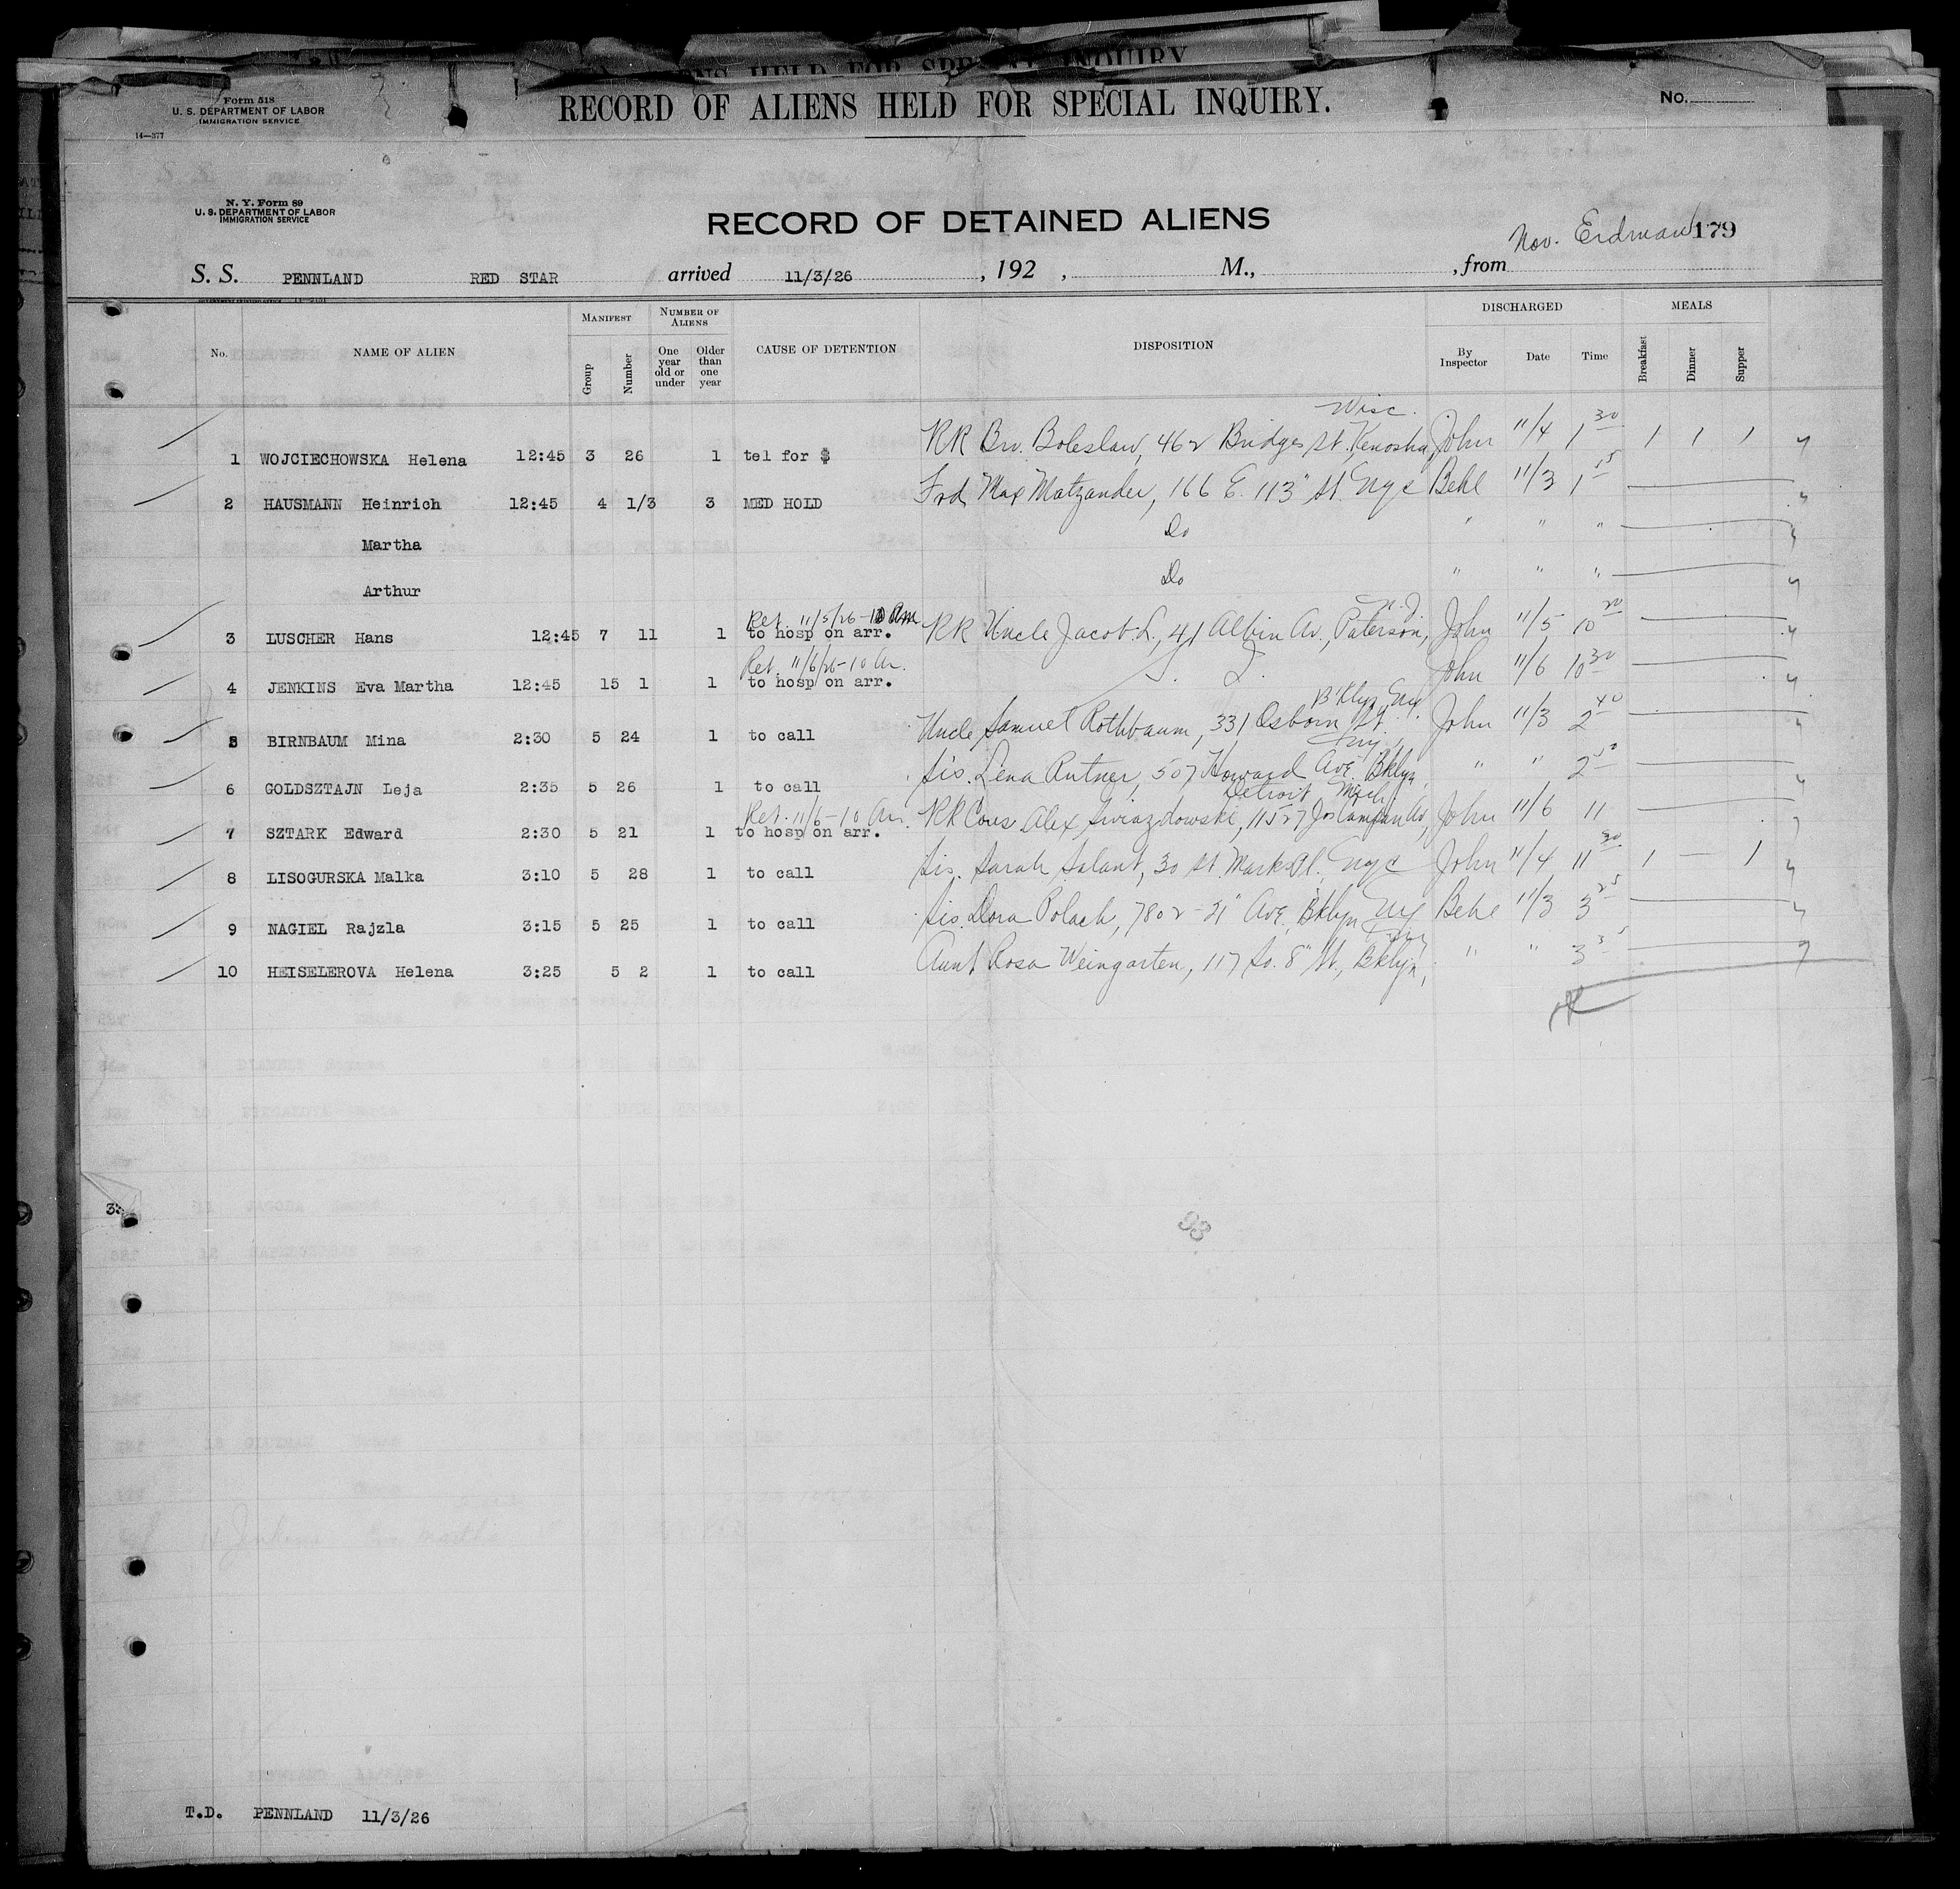 RECORD OF ALIENS HELD FOR SPECIAL INQUIRY.
Form 518
U. S. DEPARTMENT OF LABOR
IMMIGRATION SERVICE
14—377
No.
N. Y. Form 89
U. S. DEPARTMENT OF LABOR
IMMIGRATION SERVICE
RECORD OF DETAINED ALIENS
Nov. Erdman 179
S. S. PENNLAND RED STAR arrived 11/3/26, 192 , M., , from
No. NAME OF ALIEN MANIFEST Group Number NUMBER OF ALIENS One year old or under Older than one year CAUSE OF DETENTION DISPOSITION DISCHARGED By Inspector Date Time MEALS Breakfast Dinner Supper
Wisc.
1 WOJCIECHOWSKA Helena 12:45 3 26 1 tel for $ RR Bro. Boleslaw, 462 Bridges St. Kenosha, John 11/4 1 30 1 1 1
2 HAUSMANN Heinrich 12:45 4 1/3 3 MED HOLD Frd Max Matzander, 166 E. 113" St. Nyc Behl 11/3 1 15
Martha Do " " "
Arthur Do " " "
Ret. 11/5/26-10 Am N.J.
3 LUSCHER Hans 12:45 7 11 1 to hosp on arr. RR Uncle Jacob L, 41 Albin Av., Paterson, John 11/5 10 20
Ret. 11/6/26-10 Am.
4 JENKINS Eva Martha 12:45 15 1 1 to hosp on arr. John 11/6 10 30
B'klyn Ny.
5 BIRNBAUM Mina 2:30 5 24 1 to call Uncle Samuel Rothbaum, 331 Osborn St. John 11/3 2 40
Ny.
6 GOLDSZTAJN Leja 2:35 5 26 1 to call Sis. Lena Rutner, 507 Howard Ave. Bklyn, " " 2
Detroit Mich
Ret. 11/6-10 Am.
7 SZTARK Edward 2:30 5 21 1 to hosp on arr. RR Cous Alex Gwiazdowski, 11527 Jos Campau Av, John 11/6 11
8 LISOGURSKA Malka 3:10 5 28 1 to call Sis. Sarah Salant, 30 St. Marks Pl. Nyc John 11/4 11 30 1 — 1
9 NAGIEL Rajzla 3:15 5 25 1 to call Sis. Dora Polach, 7802-21" Ave. Bklyn Ny Behl 11/3 3 25
Ny
10 HEISELEROVA Helena 3:25 5 2 1 to call Aunt Rosa Weingarten, 117 So. 8" St., Bklyn, " " 3 35
98
T.D. PENNLAND 11/3/26